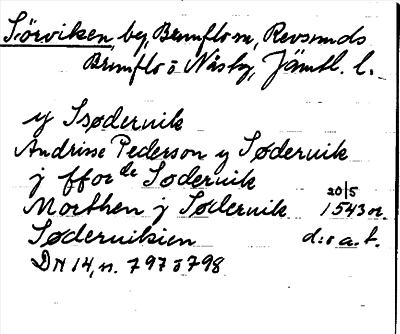 Sörviken, by, Brunflo sn, Revsunds
Brunflo o Näsby, Jämtl. l.
y Ssødervik
Andrisse Pederson y Sødervik
j ffor de Sødervik
Morthen j Sødervik 20/5 1543 or.
Sødervikien d:o a.t.
DN 14, n. 797 o 798